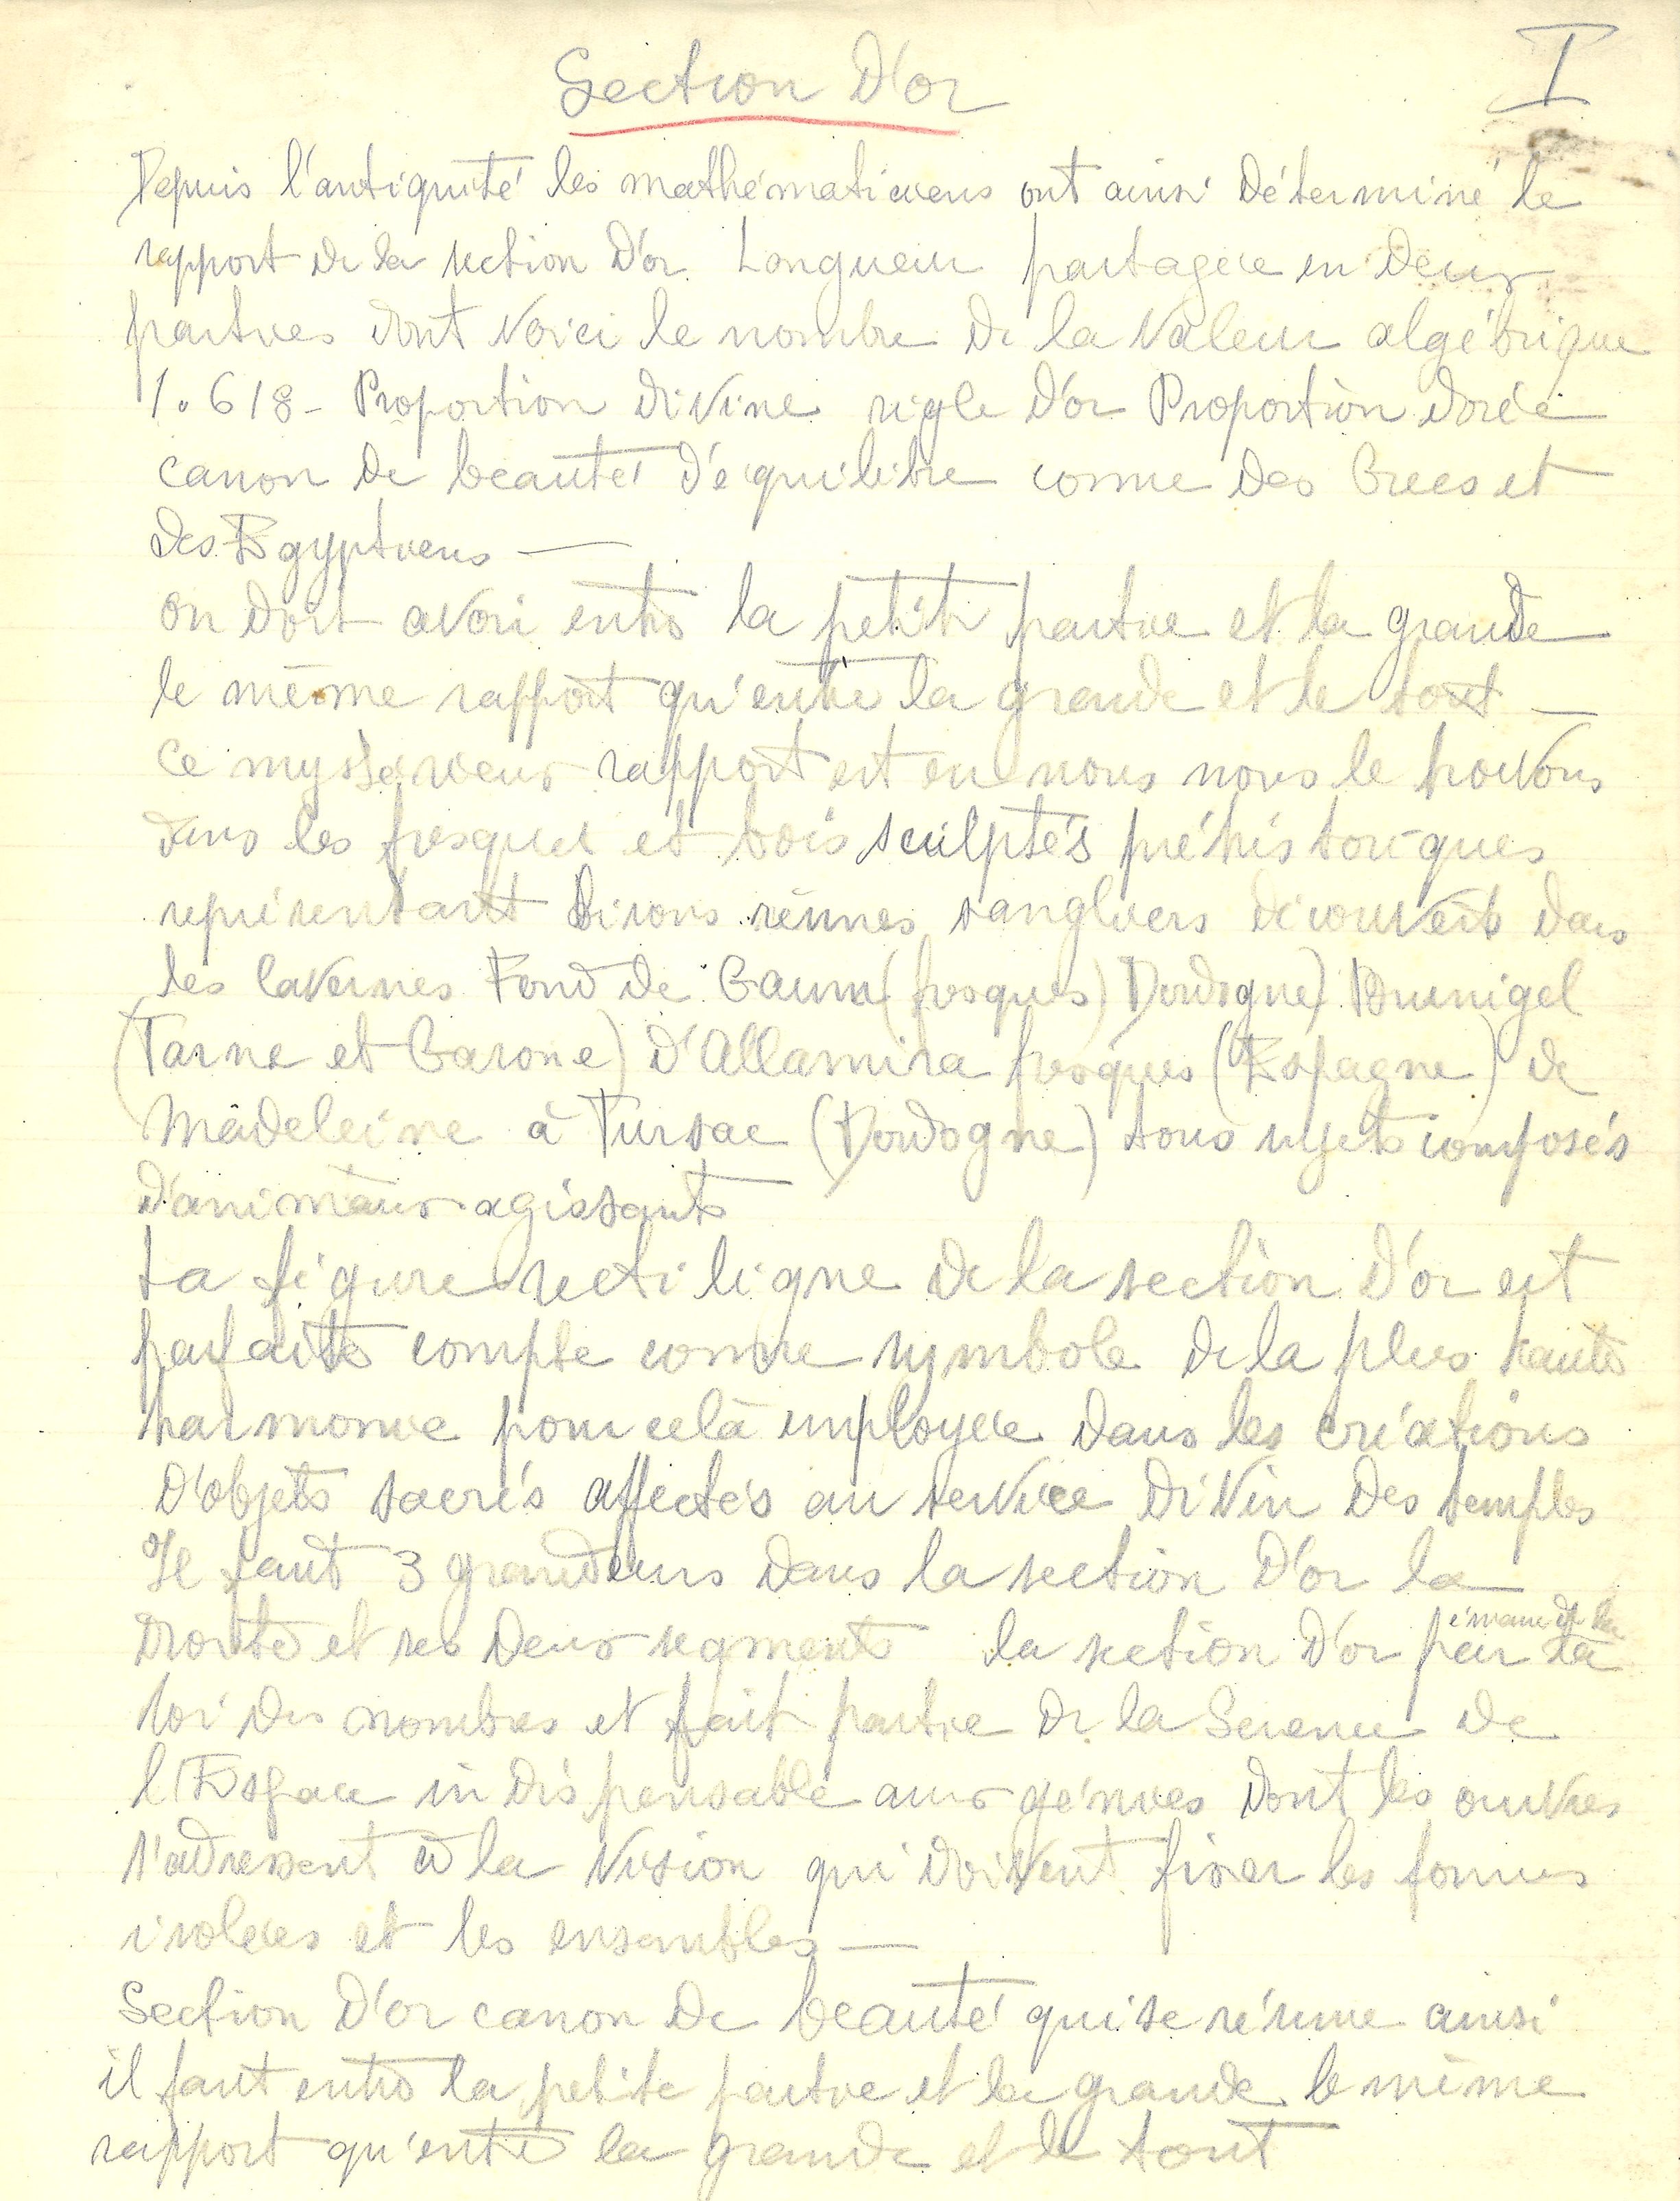 Section D'or
I
Depuis l'antiquité les mathématiciens ont ainsi déterminé le
rapport de la section d'or. Longueur partagée en deux
parties dont voici le nombre de la valeur algébrique
1.618 - Proportion divine règle d'or Proportion dorée
canon de beauté d'équilibre connue des Grecs et
des Egyptiens —
on doit avoir entre la petite partie et la grande
le même rapport qu'entre la grande et le tout —
Ce mystérieux rapport est en nous nous le trouvons
dans les fresques et bois sculptés préhistoriques
représentant bisons rennes sangliers découverts dans
les cavernes Fond de Gaum (fresques) Dordogne) Brunigel
(Tarne et Garone) d'Allamira fresques (Espagne) de
Madeleine à Tursac (Dordogne) tous sujets composés
d'animaux agissants
La figure rectiligne de la section d'or est
parfaite compte comme symbole de la plus haute
harmonie pour celà employée dans les créations
d'objets sacrés affectés au service divin des temples
Il faut 3 grandeurs dans la section d'or la
émane de la
droite et ses deux segments la section d'or par la
loi des nombres et fait partie de la Science de
l'Espace indispensable aux génies dont les œuvres
s'adressent à la vision qui doivent fixer les formes
isolées et les ensembles —
Section d'or canon de beauté qui se résume ainsi
il faut entre la petite partie et la grande le même
rapport qu'entre la grande et le tout